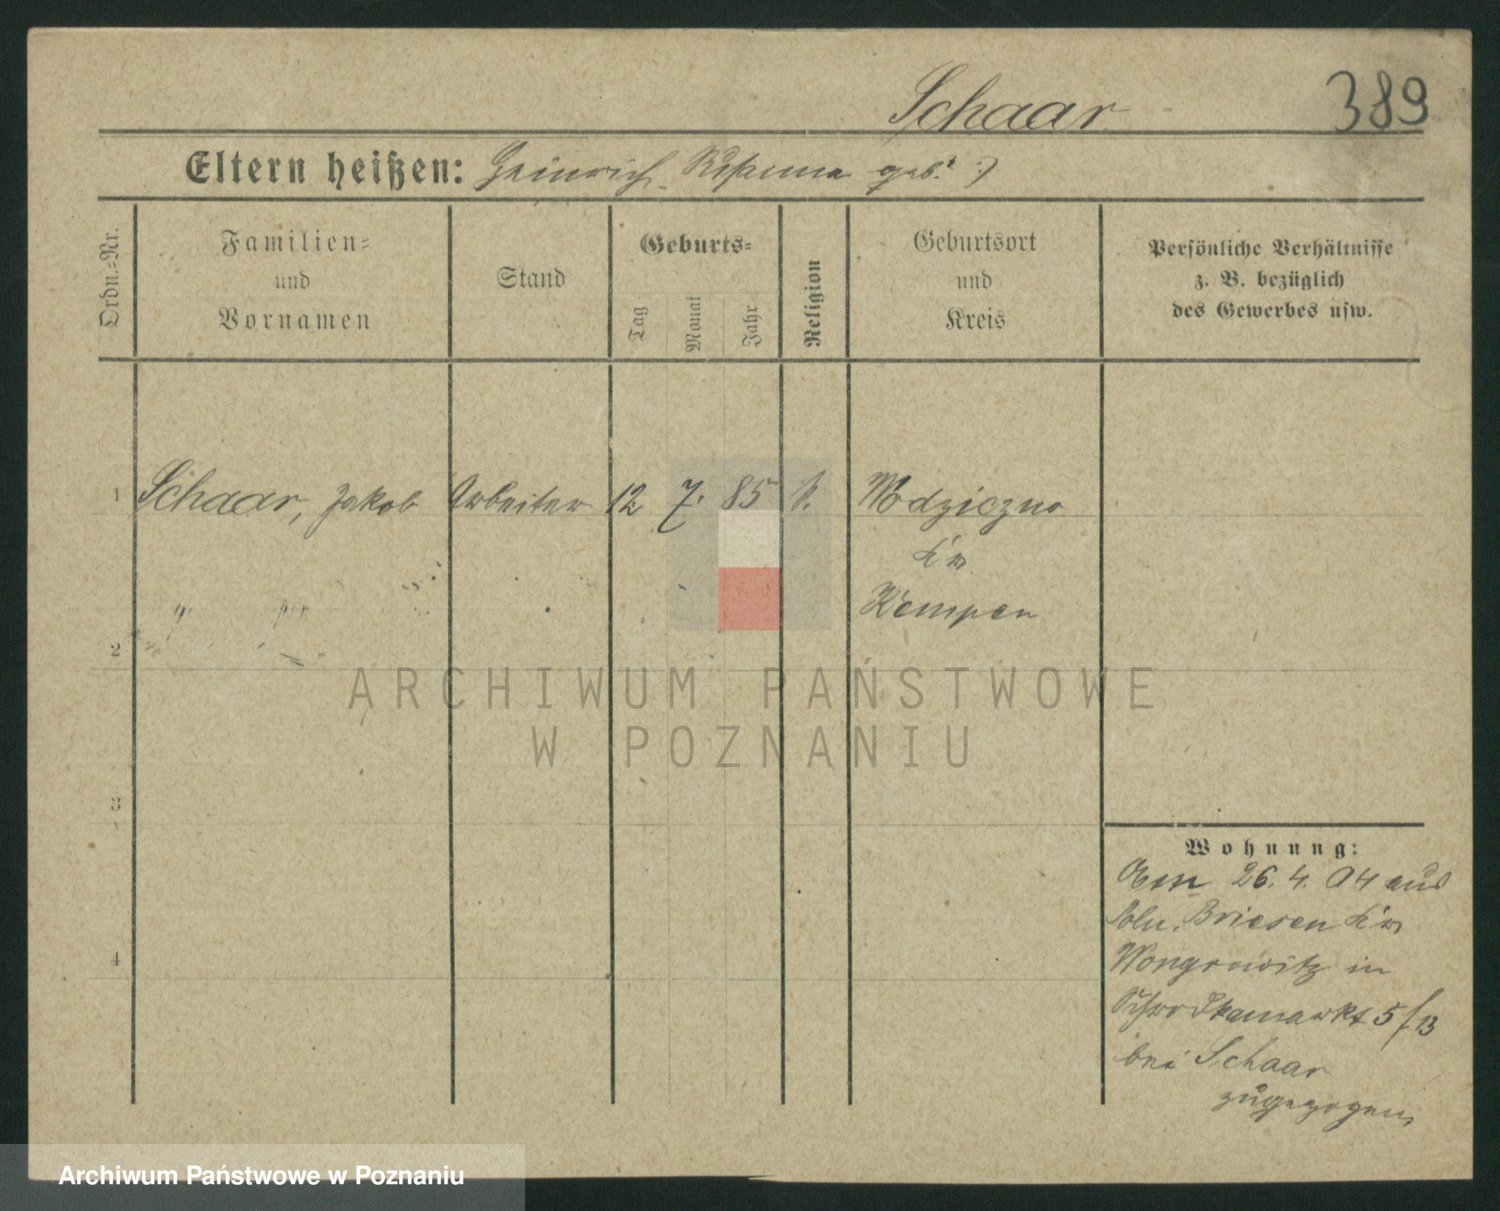 Schaar 389
Eltern heißen: Heinrich, Susanna geb. ?
Ordn.-Nr.
Familien-
und
Vornamen
Stand
Geburts-
Tag
Monat
Jahr
Religion
Geburtsort
und
Kreis
Persönliche Verhältnisse
z. B. bezüglich
des Gewerbes usw.
1 Schaar, Jakob Arbeiter 12 7. 85
Kr
Kempen
2
3
4
Wohnung:
Am 26. 4. 04 aus
Poln. Briesen Kr
Wongrowitz in
Schrodkamarkt 5/13
bei Schaar
zugezogen.
ARCHIWUM PAŃSTWOWE
W POZNANIU
Archiwum Państwowe w Poznaniu